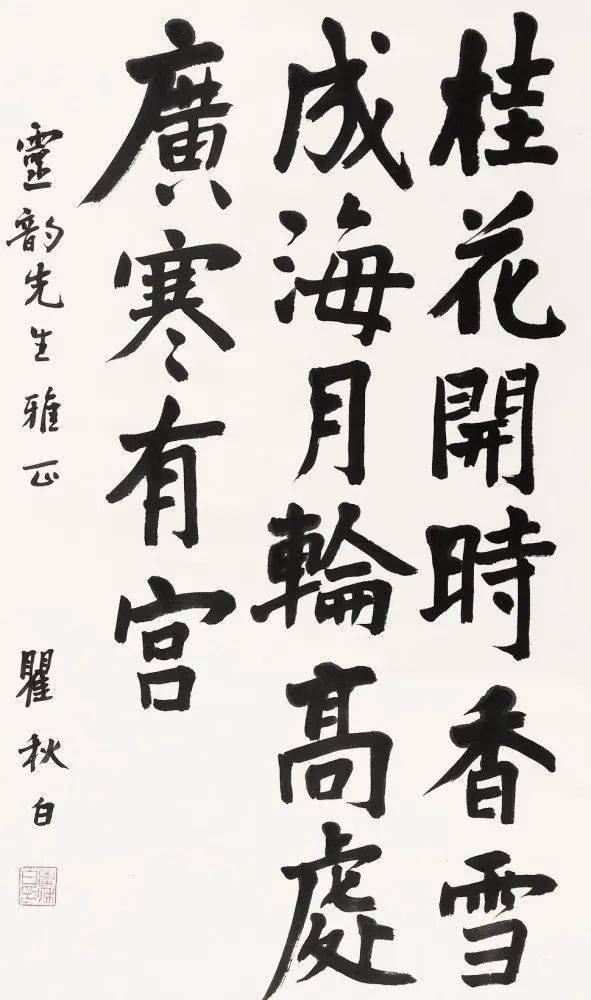 桂花開時香雪
成海月輪高處
廣寒有宮
靈韵先生雅正
瞿秋白